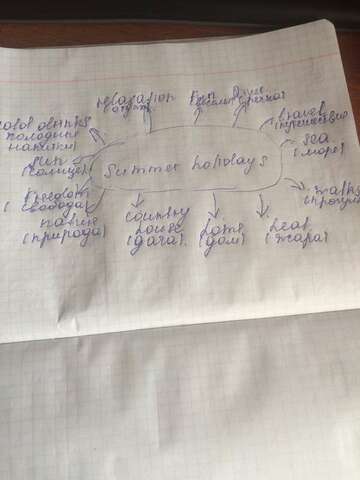 relaxation
Fun
travel
(путешествие)
sea
(море)
холодные
напитки
sun
(солнце)
Summer holidays
walks
freedom
(свобода)
nature
(природа)
country
house
(дача)
home
(дом)
heat
(жара)